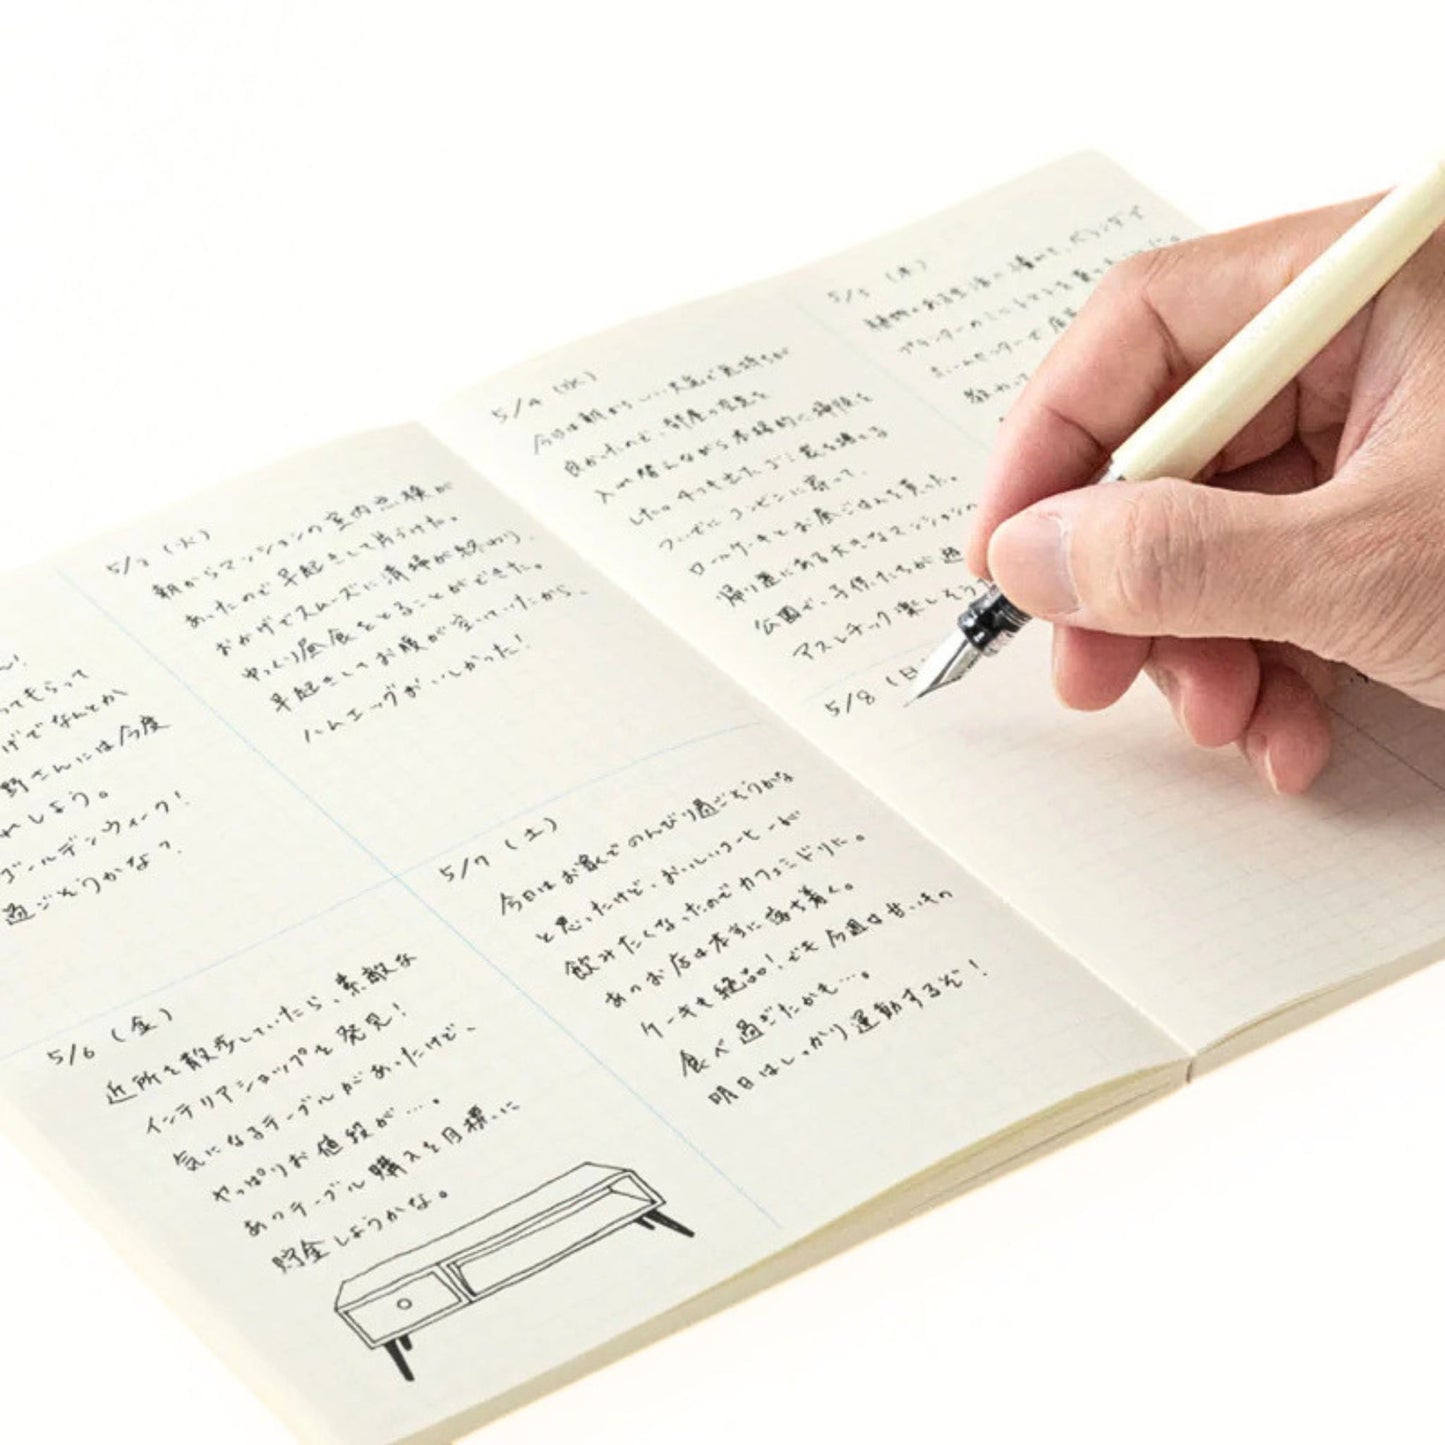 ん!
ってもらって
げでなんとか
野さんには今度
れしよう。
ゴールデンウィーク!
過ごそうかな?
5/3 (火)
朝からマンションの室内点検が
あったので早起きして片づけた。
おかげでスムーズに清掃が終わり、
ゆっくり昼食をとることができた。
早起きしてお腹が空いていたから、
ハムエッグおいしかった!
5/4 (水)
今日は朝からいい天気で気持ちが
良かったので、部屋の空気を
入れ替えながら本格的に掃除を
した。ゴミ
ついでにコンビニに寄って、
ロールケーキとお昼ごはんを買った。
帰り道にある大きなマンションの
公園で、子供たちが遊
アスレチック楽しそう
5/5 (木)
植物のある生活に憧れて、ベランダで
プランターのミニトマトを買
ホームセンターで
5/6 (金)
近所を散歩していたら、素敵な
インテリアショップを発見!
気になるテーブルがあったけど、
やっぱりお値段が…。
あのテーブル購入を目標に
貯金しようかな。
5/7 (土)
今日はお家でのんびり過ごそうかな
と思ったけど、おいしいコーヒーが
飲みたくなったのでカフェミドリに。
あのお店は本当に落ち着く。
ケーキも絶品!でも今週は甘いもの
食べ過ぎたかも…。
明日はしっかり運動するぞ!
5/8 (日